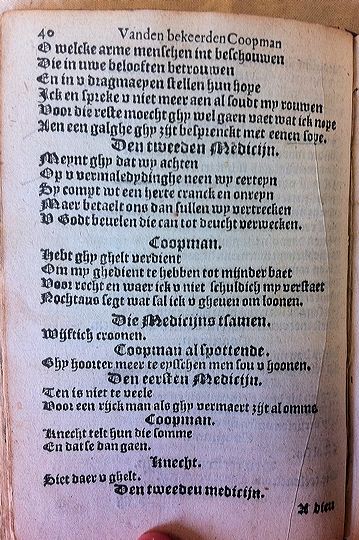 40 Vanden bekeerden Coopman
O welcke arme menschen int beschouwen
Die in uwe belooften betrouwen
En in v dragmaepen stellen hun hope
Ick en spreke v niet meer aen al soudt my rouwen
Voor die reste moecht ghy wel gaen vaer wat ick nope
Aen een galghe ghy zijt besprenckt met eenen sope.
Den tweeden Medicijn.
Meynt ghy dat wy achten
Op v vermaledydinghe neen wy certeyn
Sy compt wt een herte cranck en onreyn
Maer betaelt ons dan sullen wy vertrecken
V Godt beuelen die can tot deucht verwecken.
Coopman.
Hebt ghy ghelt verdient
Om my ghedient te hebben tot mijnder baet
Voor recht en waer ick v niet schuldich my verstaet
Nochtans segt wat sal ick v gheuen om loonen.
Die Medicijns tsamen.
Wijftich croonen.
Coopman al spottende.
Ghy hoorter meer te eysschen men sou v hoonen.
Den eersten Medicijn.
Ten is niet te veele
Voor een rijck man als ghy vermaert zijt al omme
Coopman.
Knecht telt hun die somme
En dat se dan gaen.
Knecht.
Siet daer v ghelt.
Den tweeden medicijn.
A dieu